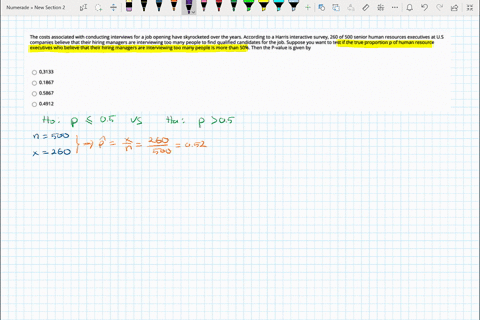 Numerade » New Section 2
The costs associated with conducting interviews for a job opening have skyrocketed over the years. According to a Harris interactive survey, 260 of 500 senior human resources executives at U.S
companies believe that their hiring managers are interviewing too many people to find qualified candidates for the job. Suppose you want to test if the true proportion p of human resource
executives who believe that their hiring managers are interviewing too many people is more than 50%. Then the P-value is given by
0,3133
0.1867
0.5867
0.4912
Ho: p ≤ 0.5 vs Ha: p > 0.5
n = 500
x = 260 } → p̂ = x/n = 260/500 = 0.52